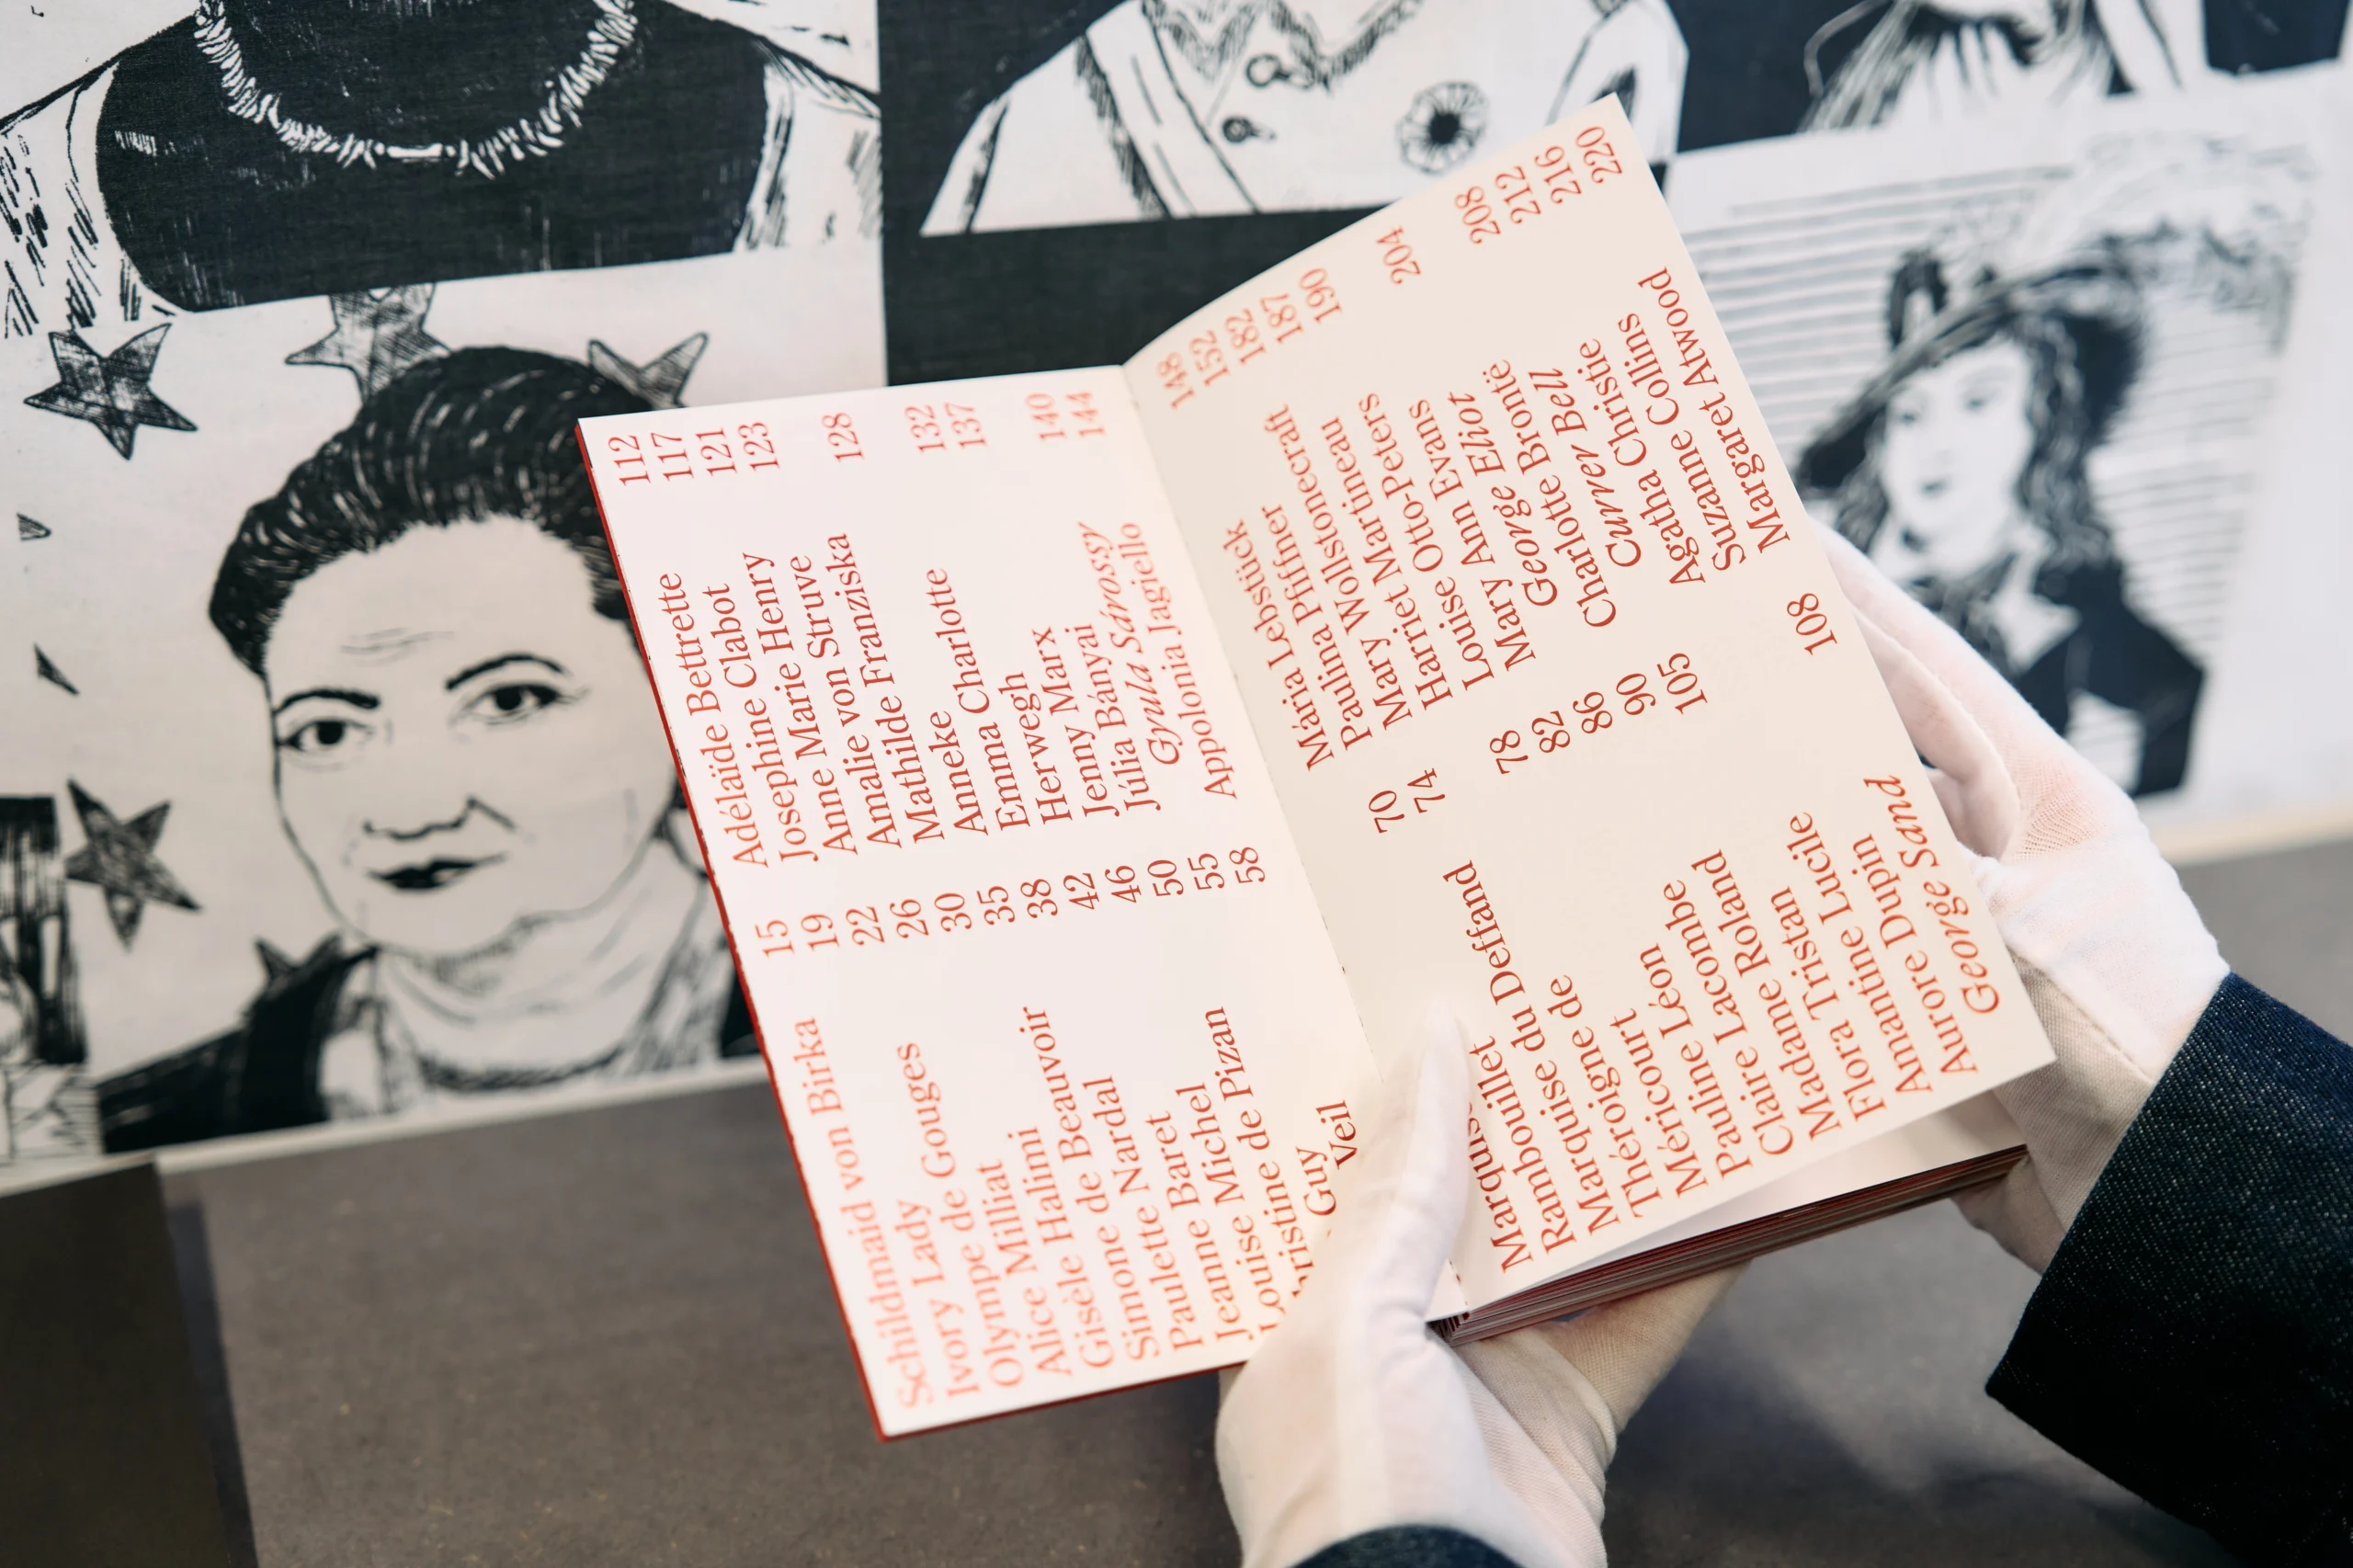 Schildmaid von Birka 15
Ivory Lady 19
Olympe de Gouges 22
Alice Milliat 26
Gisèle Halimi 30
Simone de Beauvoir 35
Paulette Nardal 38
Jeanne Baret 42
Louise Michel 46
Christine de Pizan 50
Guy 55
Veil 58
Adélaïde Bettrette 112
Josephine Clabot 117
Anne Marie Henry 121
Amalie von Struve 123
Mathilde Franziska
Anneke 128
Emma Charlotte
Herwegh 132
Jenny Marx 137
Júlia Bányai
Gyula Sárossy 140
Appolonia Jagiello 144
Marquise
Rambouillet 70
Marquise du Deffand 74
Théroigne de
Méricourt 78
Pauline Léon 82
Claire Lacombe 86
Madame Roland 90
Flora Tristan 105
Amantine Lucile
Aurore Dupin
George Sand 108
Mária Lebstück 148
Paulina Pfiffner 152
Mary Wollstonecraft 182
Harriet Martineau 187
Louise Otto-Peters 190
Mary Ann Evans
George Eliot 204
Charlotte Brontë
Currer Bell 208
Agatha Christie 212
Suzanne Collins 216
Margaret Atwood 220